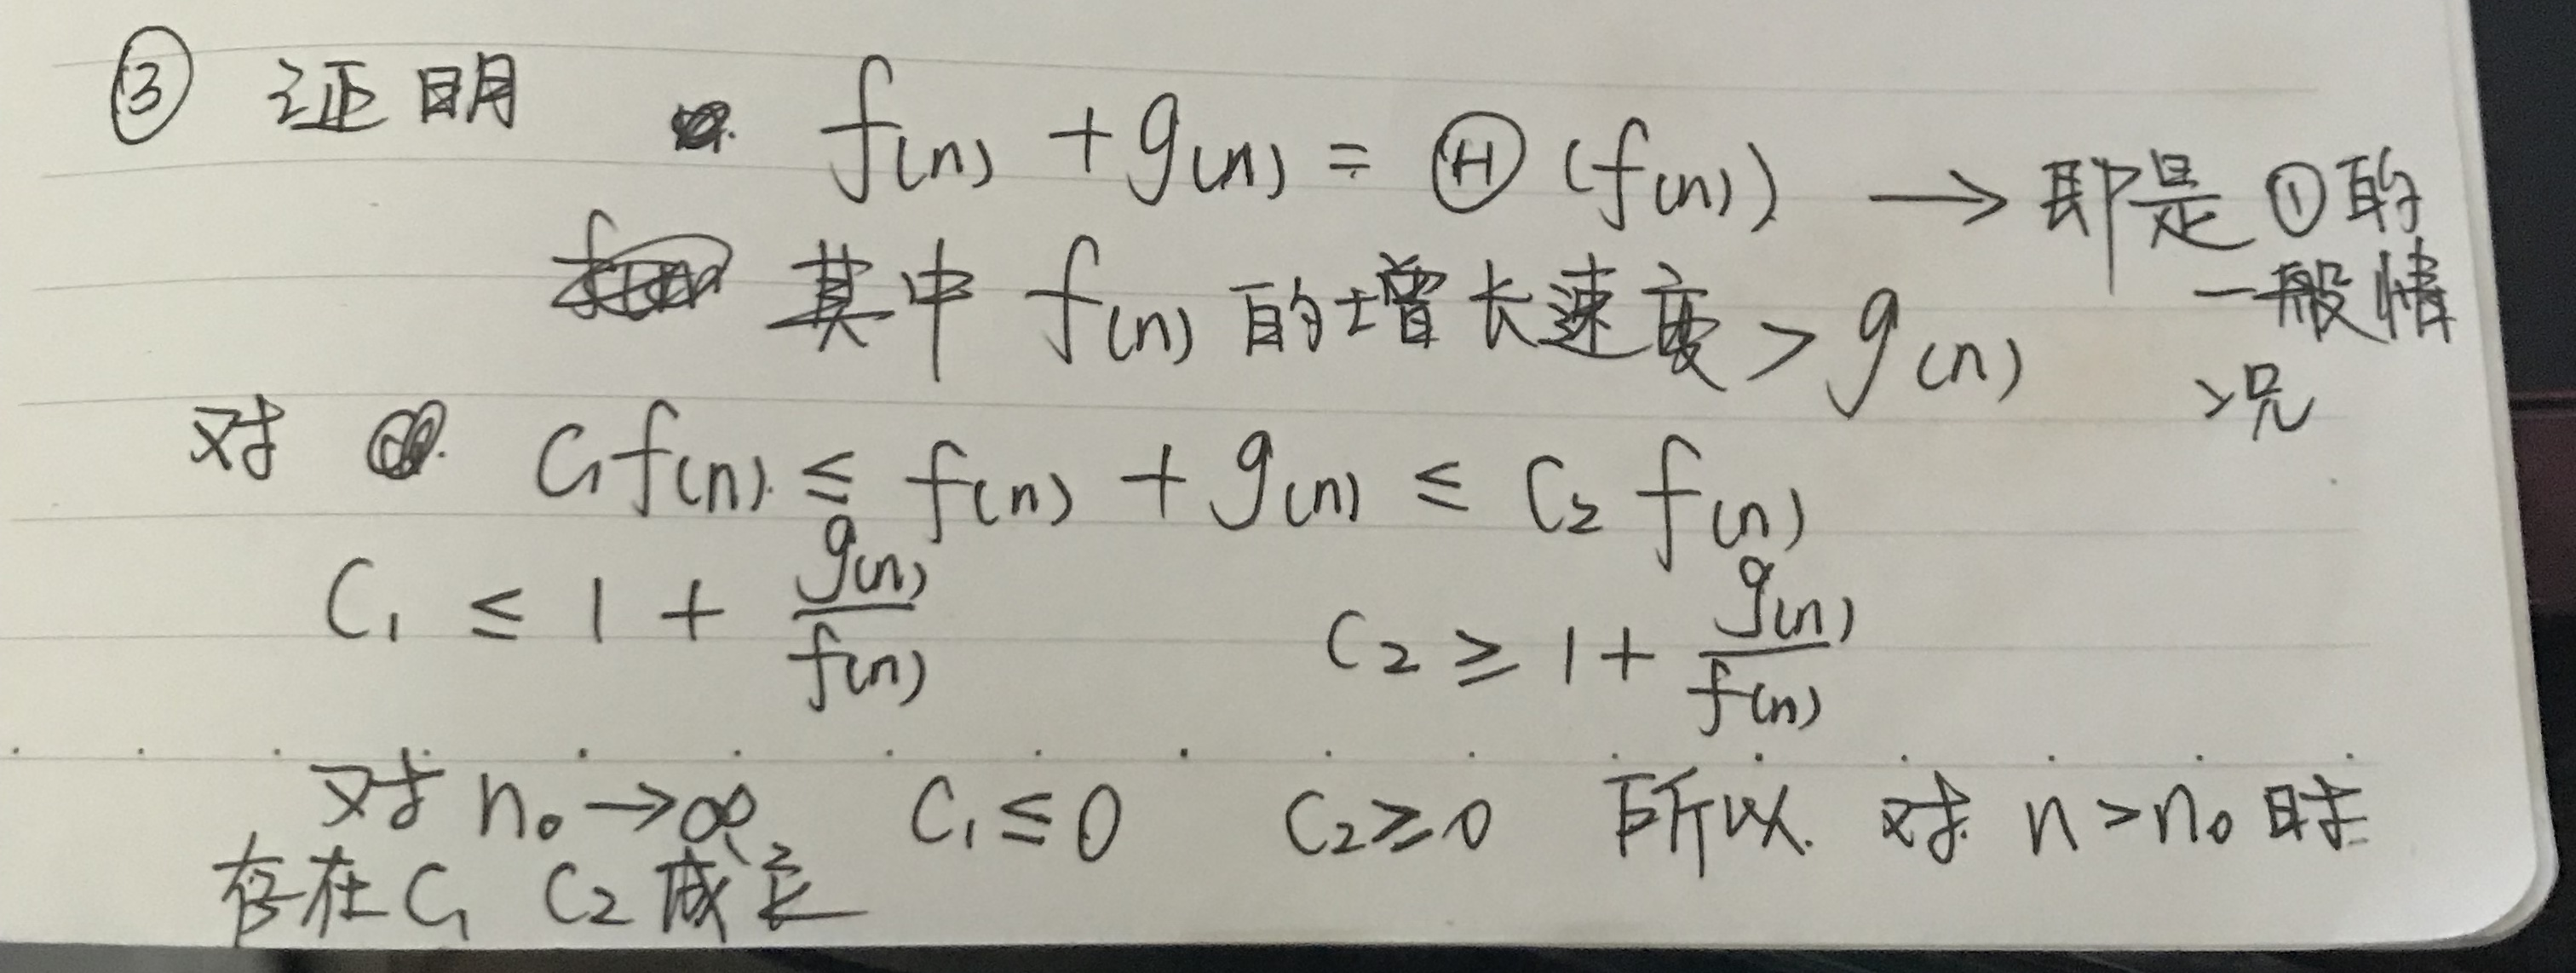 ③ 证明 f(n) + g(n) = Ⓗ (f(n)) → 即是①的
一般情
况
其中 f(n) 的增长速度 > g(n)
对 C₁f(n) ≤ f(n) + g(n) ≤ C₂ f(n)
C₁ ≤ 1 + g(n)/f(n) C₂ ≥ 1 + g(n)/f(n)
对 n₀ → ∞ C₁ ≤ 0 C₂ ≥ 0 所以 对 n > n₀ 时
存在 C₁ C₂ 成立